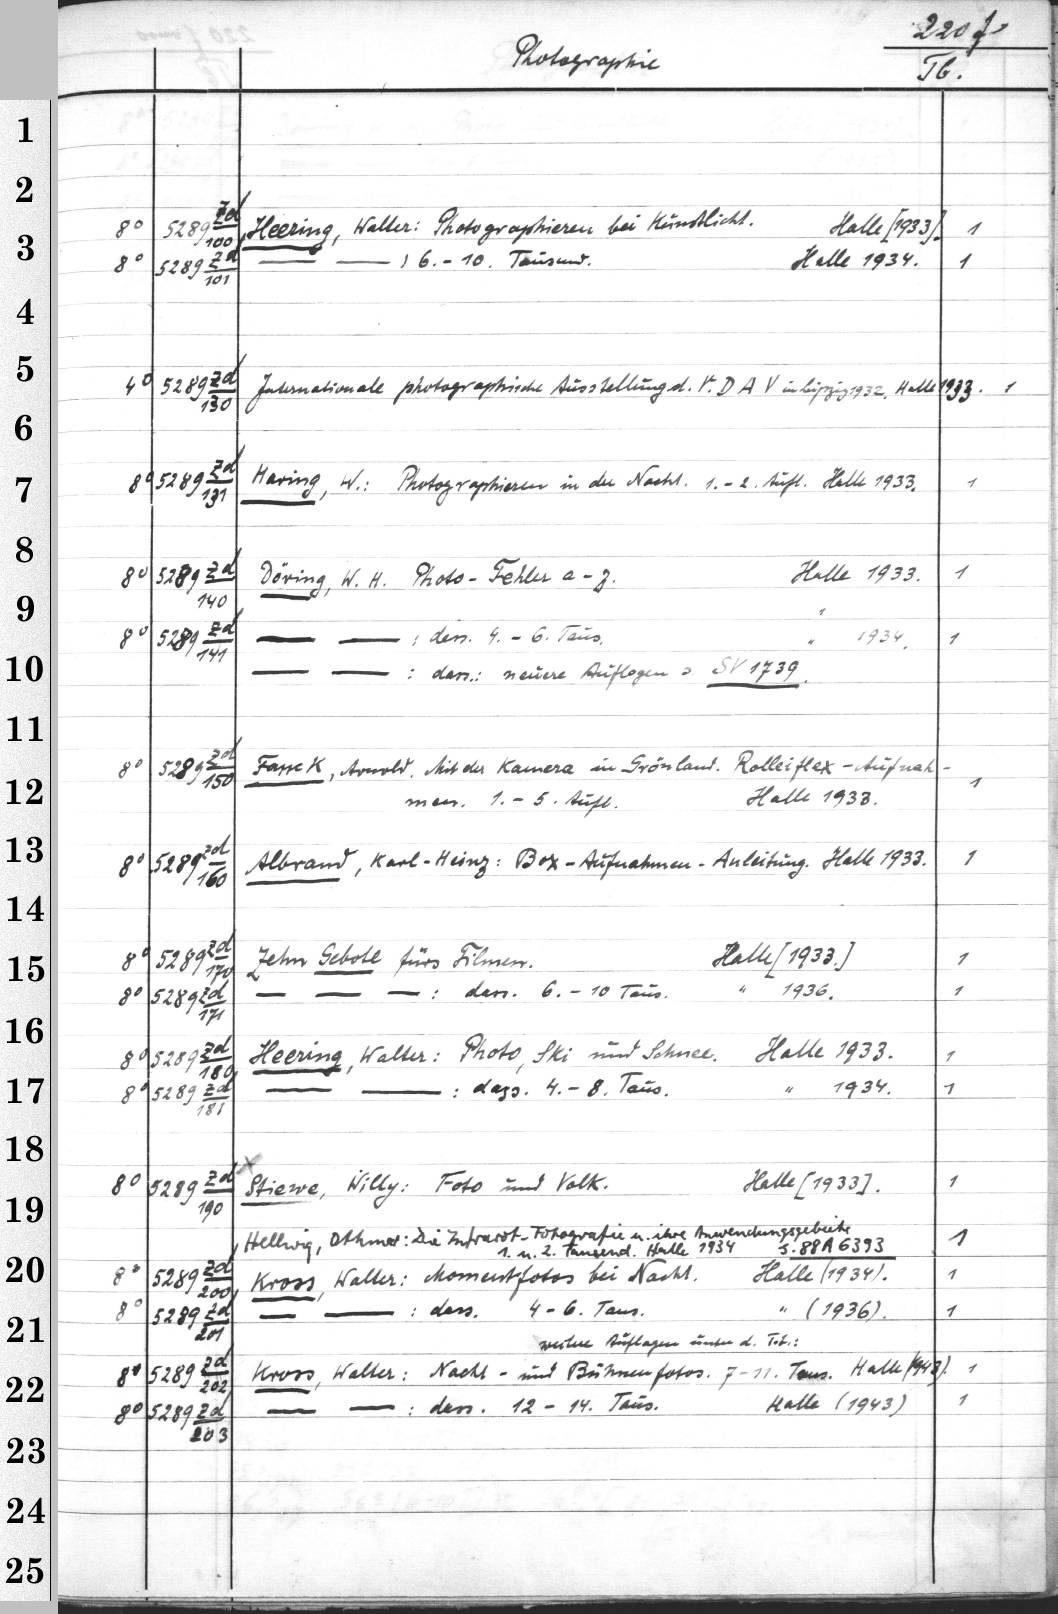 220 f
Photographie
Tb.
1
2
8° 5289 Zd/100 Heering, Walter: Photographieren bei Kunstlicht. Halle [1933]. 1
3
8° 5289 Zd/101 — — : 6.-10. Tausend. Halle 1934. 1
4
5
4° 5289 Zd/130 Internationale photographische Ausstellung d. V. D A V in Leipzig 1932. Halle 1933. 1
6
7
8° 5289 Zd/131 Haring, W.: Photographieren in der Nacht. 1.-2. Aufl. Halle 1933. 1
8
8° 5289 Zd/140 Döring, W. H. Photo-Fehler a-z. Halle 1933. 1
9
8° 5289 Zd/141 — — : dass. 4.-6. Taus. " 1934. 1
10
— — : dass.: neuere Auflagen s. SV 1739.
11
8° 5289 Zd/150 Fasse K, Arnold. Mit der Kamera in Grönland. Rolleiflex-Aufnah-
12
men. 1.-5. Aufl. Halle 1933. 1
13
8° 5289 Zd/160 Albrand, Karl-Heinz: Box-Aufnahmen-Anleitung. Halle 1933. 1
14
15
8° 5289 Zd/170 Zehn Gebote fürs Filmen. Halle [1933.] 1
8° 5289 Zd/171 — — — : dass. 6.-10 Taus. " 1936. 1
16
8° 5289 Zd/180 Heering, Walter: Photo, Ski und Schnee. Halle 1933. 1
17
8° 5289 Zd/181 — — : dass. 4.-8. Taus. " 1934. 1
18
8° 5289 Zd/190 Stiewe, Willy: Foto und Volk. Halle [1933]. 1
19
Hellwig, Othmar: Die Infrarot-Fotografie u. ihre Anwendungsgebiete
1. u. 2. Tausend. Halle 1934 s. 88 A 6393 1
20
8° 5289 Zd/200 Kross, Walter: Momentfotos bei Nacht. Halle (1934). 1
8° 5289 Zd/201 — — : dass. 4-6. Taus. " (1936). 1
21
weitere Auflagen unter d. Tit.:
8° 5289 Zd/202 Kross, Walter: Nacht- und Bühnenfotos. 7-11. Taus. Halle (1943). 1
22
8° 5289 Zd/203 — — : dass. 12-14. Taus. Halle (1943) 1
23
24
25